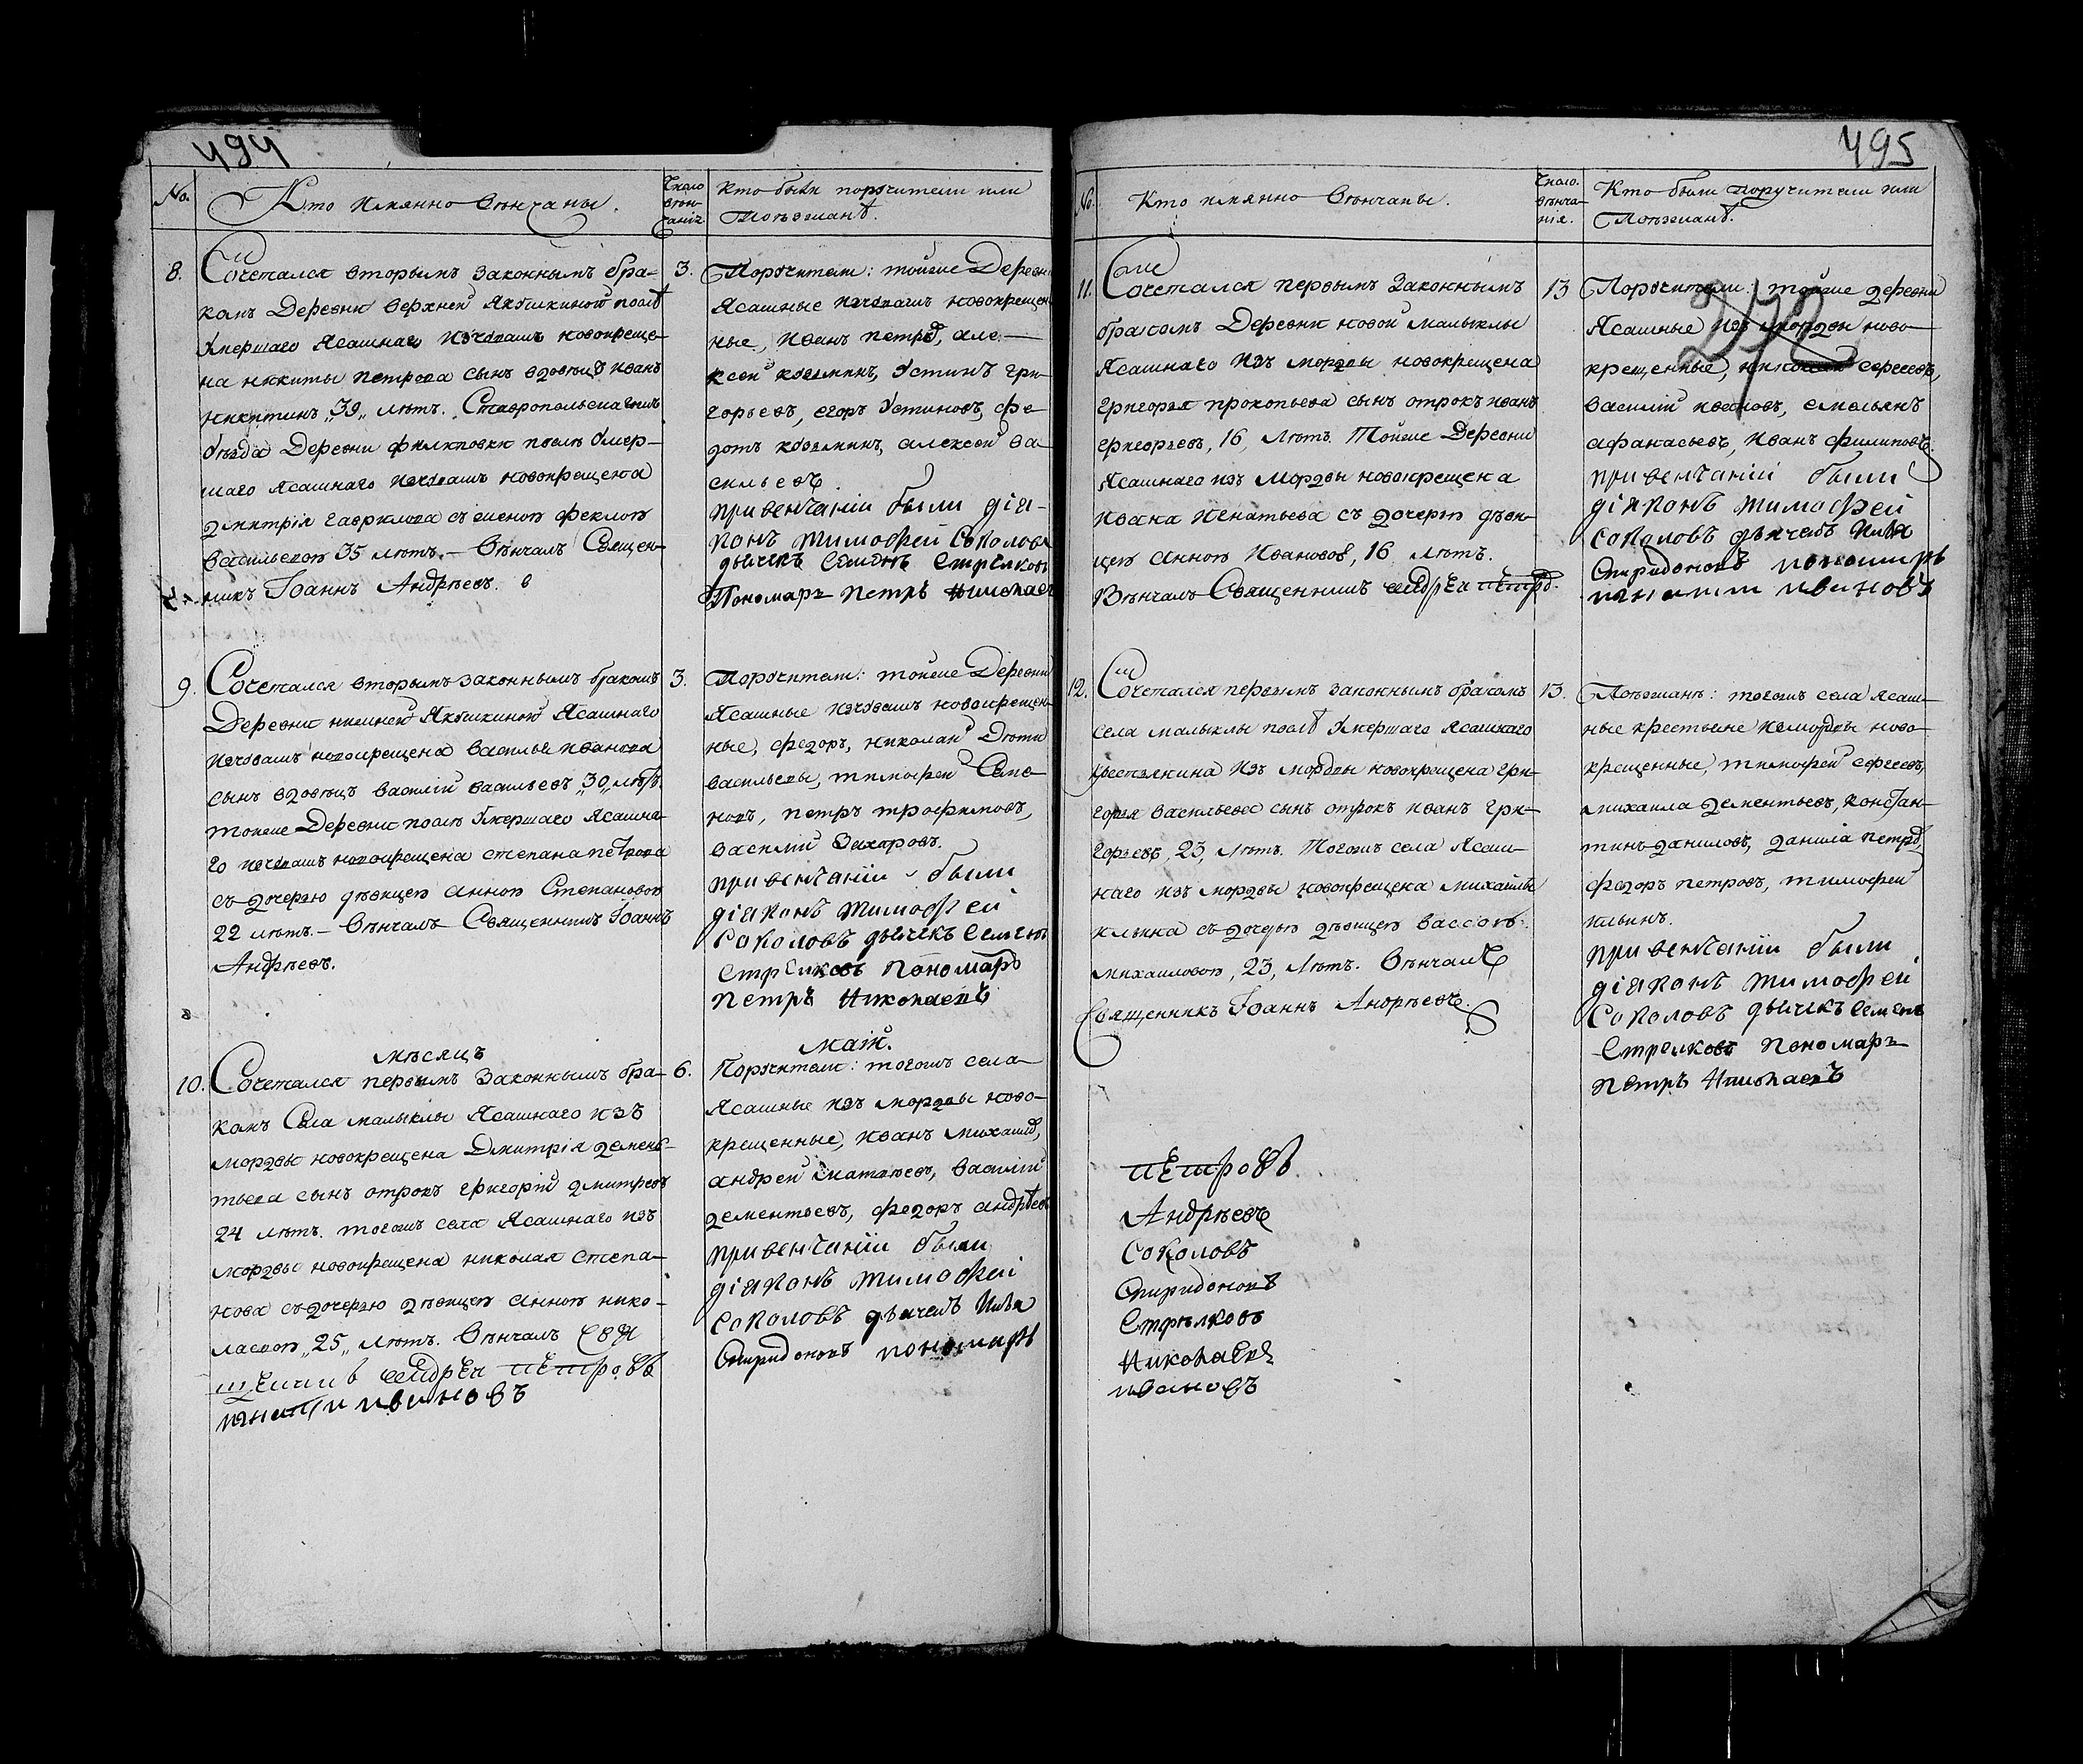 494
No.
Кто имянно венчаны.
Число венчания
Кто были поручители или
Поезжанѣ.
8.
Сочетался вторымъ законнымъ бра-
комъ Деревни верхней Якушкиной послѣ
Умершаго Ясашнаго изчювашъ новокреще-
на никиты петрова сынъ вдовецъ иванъ
никитинъ „39„ лѣтъ. Ставропольскагожъ
Уѣзда Деревни филиповки послѣ Умер-
шаго Ясашнаго изчювашъ новокрещена
дмитрия гаврилова съ женою феклою
васильевою 35 лѣтъ. – Вѣнчалъ Священ-
никъ Іоаннъ Андрѣевъ.
3.
Поручители: тойже Деревни
Ясашные изчювашъ новокрещен
ные, иванъ петровъ, але-
ксей козминъ, Устинъ гри-
горьевъ, егоръ Устиновъ, фе
дотъ козминъ, алексей ва-
сильевъ
привенчании были дия-
конъ тимофей Соколовъ
дьячекъ Семенъ Стрелковъ
Пономарь петръ николаевъ
9.
Сочетался вторымъ законнымъ бракомъ
Деревни нижней Якушкиной Ясашнаго
изчювашъ новокрещена василья иванова
сынъ вдовецъ василий васильевъ „30„ лѣтъ.
тойже Деревни послѣ Умершаго Ясашна-
го изчювашъ новокрещена степана петрова
съ дочерью дѣвицею анною Степановою
22 лѣтъ. – Вѣнчалъ Священникъ Іоаннъ
Андрѣевъ.
3.
Поручители: тойже Деревни
Ясашные изчювашъ новокрещен-
ные, федоръ, николай Дѣти
васильевы, тимофей Семе-
новъ, петръ трофимовъ,
василий Захаровъ.
привенчании были
диаконъ тимофей
Соколовъ дьячекъ Семенъ
Стрелковъ Пономарь
Петръ Николаевъ
мѣсяцъ
маій.
10.
Сочетался первымъ Законнымъ бра-
комъ Села малыклы Ясашнаго изъ
мордвы новокрещена Дмитрия демень-
тьева сынъ отрокъ григорий дмитревъ
24 лѣтъ. тогожъ села Ясашнаго изъ
мордвы новокрещена николая степа-
нова съдочерью дѣвицею анною нико-
лаевою „25„ лѣтъ. Вѣнчалъ свя
щенникъ андрей петровъ
игнатий ивановъ
6.
Поручители: тогожъ села
Ясашные изъ мордвы ново-
крещенные, иванъ михайловъ,
андрей игнатьевъ, василий
дементьевъ, федоръ андрѣевъ
привенчании были
диаконъ тимофей
Соколовъ дьячекъ Илья
Спиридоновъ пономарь
495
No.
Кто имянно Вѣнчаны.
Число. вѣнча-
ния.
Кто были поручители или
Поезжанѣ.
11.
Сочетался первымъ Законнымъ
бракомъ Деревни новой малыклы
Ясашнаго изъ мордвы новокрещена
григорья прокопьева сынъ отрокъ иванъ
григорьевъ, 16, лѣтъ. Тойже Деревни
Ясашнаго изъ мордвы новокрещена
ивана игнатьева съ дочерью дѣви-
цею анною Ивановою, 16 лѣтъ.
Вѣнчалъ Священникъ андрей петровъ.
13
Поручители: тойже деревни
Ясашные изъ мордвы ново-
крещенные, николай сергеевъ,
василий ивановъ, емельянъ
афанасьевъ, иванъ филиповъ.
привенчании были
диаконъ тимофей
соколовъ дьячекъ Илья
Спиридоновъ пономарь
игнатий ивановъ
12.
Сочетался первымъ законнымъ бракомъ
села малыклы послѣ Умершаго Ясашнаго
крестьянина изъ мордвы новокрещена гри-
горья васильева сынъ отрокъ иванъ гри-
горьевъ, 23, лѣтъ. Тогожъ села Ясаш-
наго изъ мордвы новокрещена михайлы
ильина съ дочерью дѣвицею вассою
михайловою, 23, лѣтъ. Вѣнчалъ
Священникъ Іоаннъ Андрѣевъ.
13.
Поезжанѣ: тогожъ села Ясаш-
ные крестьяне измордвы ново-
крещенные, тимофей сергеевъ,
михайла дементьевъ, констан-
тинъ даниловъ, данила петровъ,
федоръ петровъ, тимофей
ильинъ.
привенчании были
диаконъ тимофей
Соколовъ дьячекъ Семенъ
Стрелковъ Пономарь
Петръ Николаевъ
петровъ
Андрѣевъ
Соколовъ
Спиридоновъ
Стрѣлковъ
Николаевъ
ивановъ